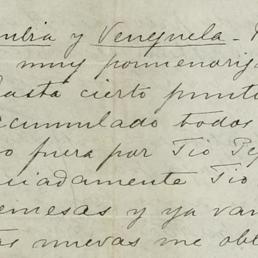 mbia y Venezuela -
muy pormenoriza
hasta cierto punto
acumulado todos
o fuera por Tio Pep
raciadamente Tio
emesas y ya van
as nuevas me obl